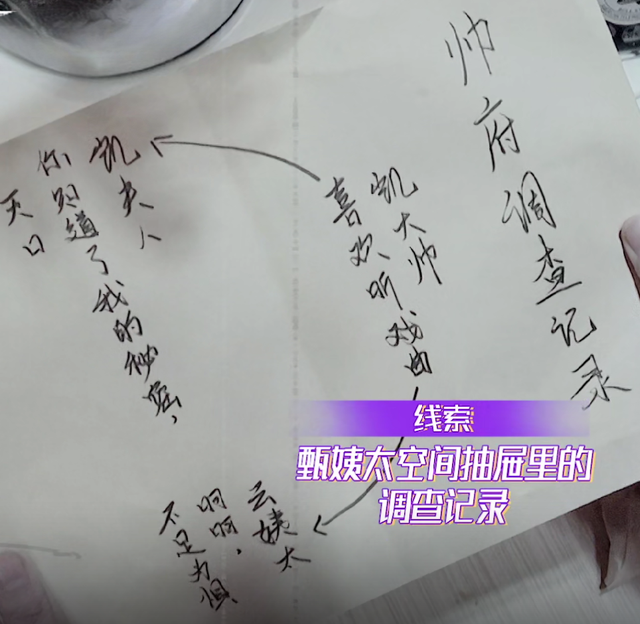 帅府调查记录
凯大帅
喜欢听戏曲
凯夫人
你知道了我的秘密，
灭口
云姨太
啊啊，
不足为惧
线索
甄姨太空间抽屉里的
调查记录